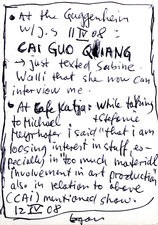 • At the Guggenheim
w/ J.S 11 IV 08 :
CAI GUO QIANG
→ just texted Sabine
Walli that she now can
interview me.
• At Cafe Katja: While talking
to Michael + Stefanie
I said "that i am
loosing interest in stuff, es-
pecially in "too much material
involvement in art production"
also in relation to above
(CAI) mentioned show.
12 IV 08